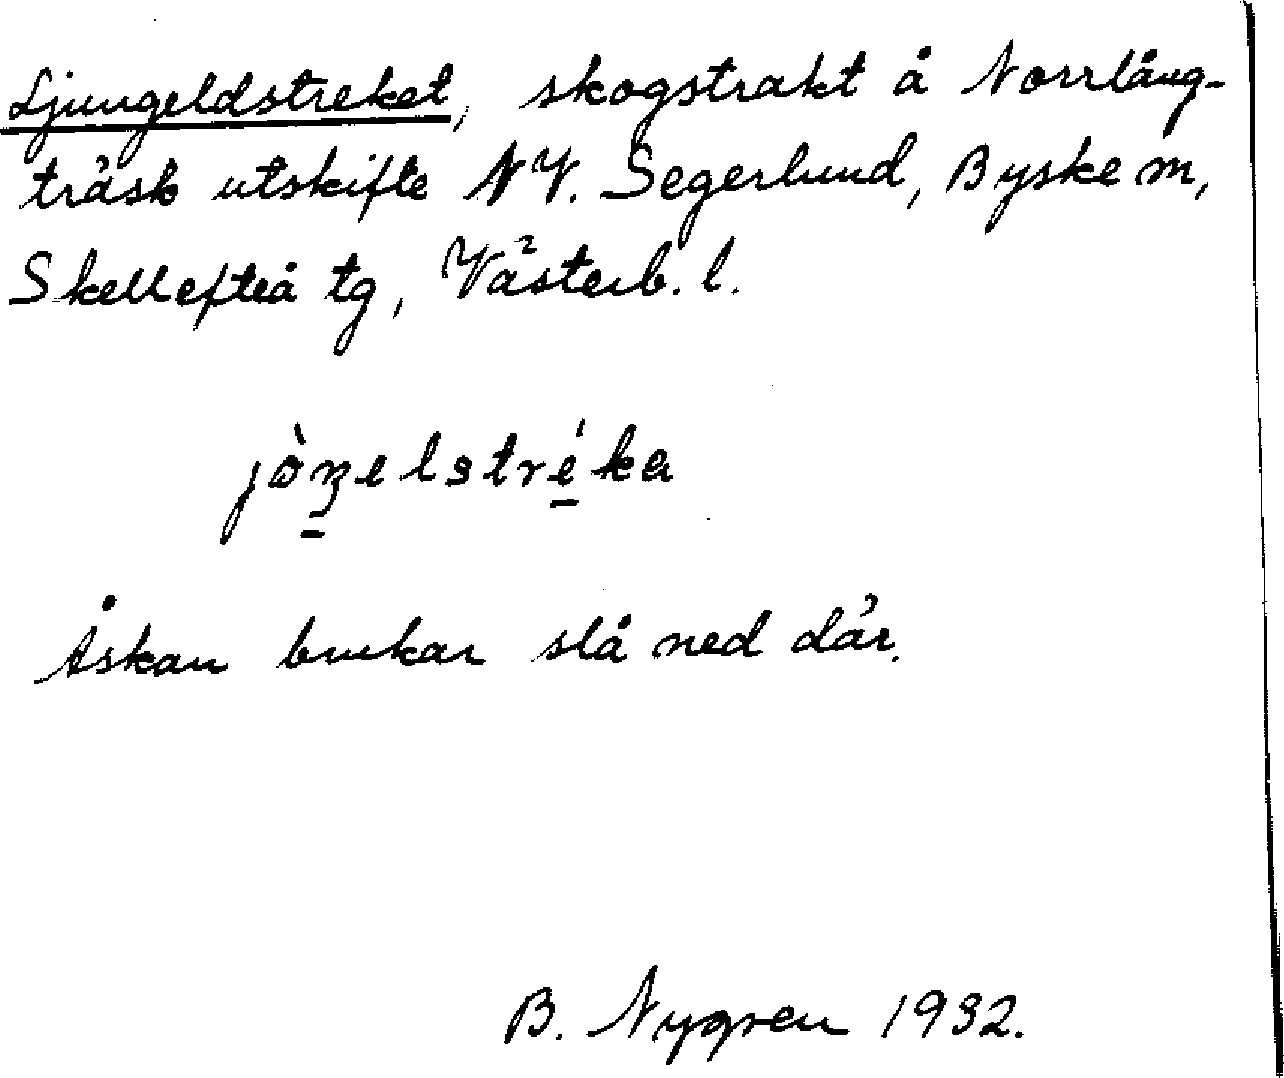 Ljungeldstreket, skogstrakt å Norrlång-
träsk utskifte NV. Segerlund, Byske sn,
Skellefteå tg, Västerb. l.
jòŋelstréka
Åskan brukar slå ned där.
B. Nygren 1932.